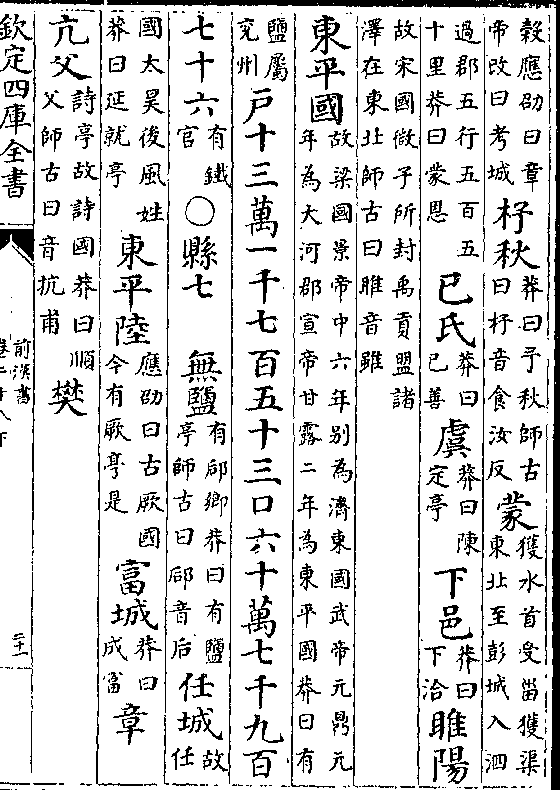 穀應劭曰章帝改曰考城 杼秋莽曰予秋師古曰杼音食汝反 蒙獲水首受甾獲渠東北至彭城入泗
過郡五行五百五十里莽曰蒙恩 已氏莽曰已善 虞莽曰陳定亭 下邑莽曰下洽 睢陽
故宋國微子所封禹貢盟諸澤在東北師古曰睢音雖
東平國故梁國景帝中六年别為濟東國武帝元鼎元年為大河郡宣帝甘露二年為東平國莽曰有
鹽屬兖州 戸十三萬一千七百五十三口六十萬七千九百
七十六有鐵官○縣七 無鹽有郈鄉莽曰有鹽亭師古曰郈音后 任城故任
國太昊後風姓莽曰延就亭 東平陸應劭曰古厥國今有厥亭是 富城莽曰成富 章
亢父詩亭故詩國莽曰順父師古曰音抗甫 樊
欽定四庫全書
前漢書
卷二十八下
二十一